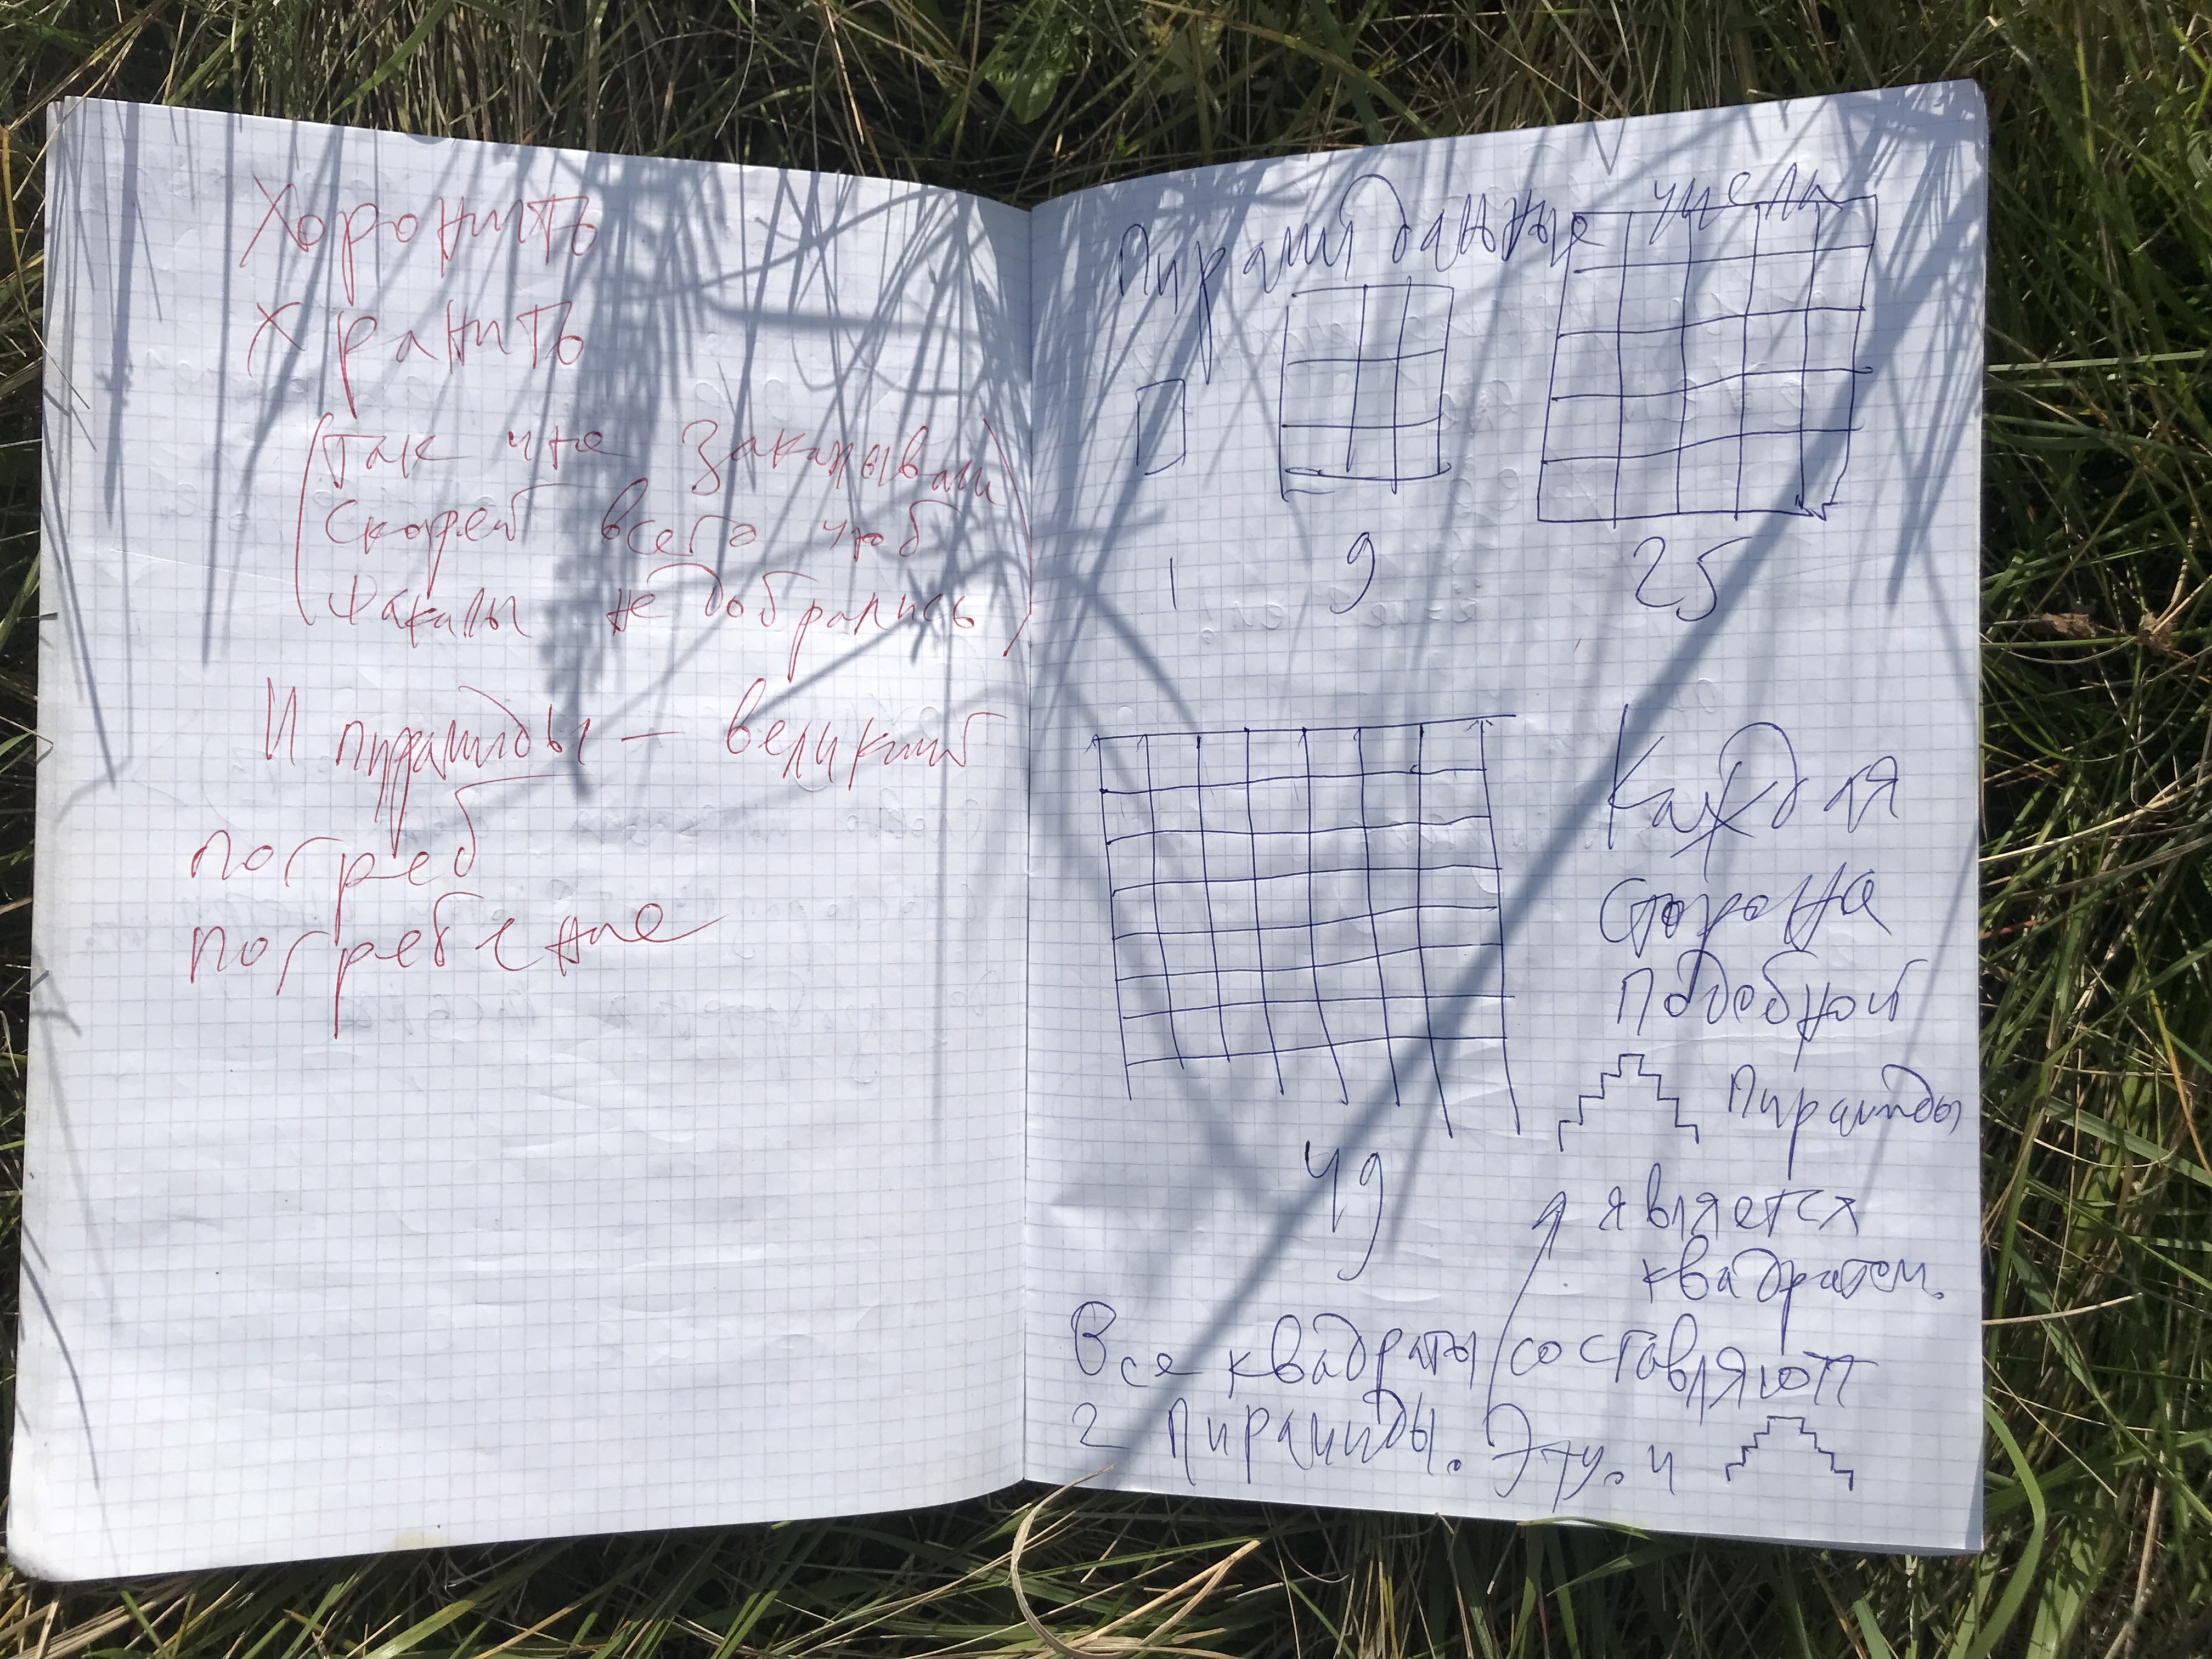 Хоронить
Хранить
(Так что закапывали)
Скорей всего чтоб
(шакалы не добрались)
И пирамиды – великий
погреб
погребение
Пирамидальные числы
1 9 25
49
Каждая
сторона
подобной
пирамиды
является
квадратом.
Все квадраты составляют
2 пирамиды. Эту. и